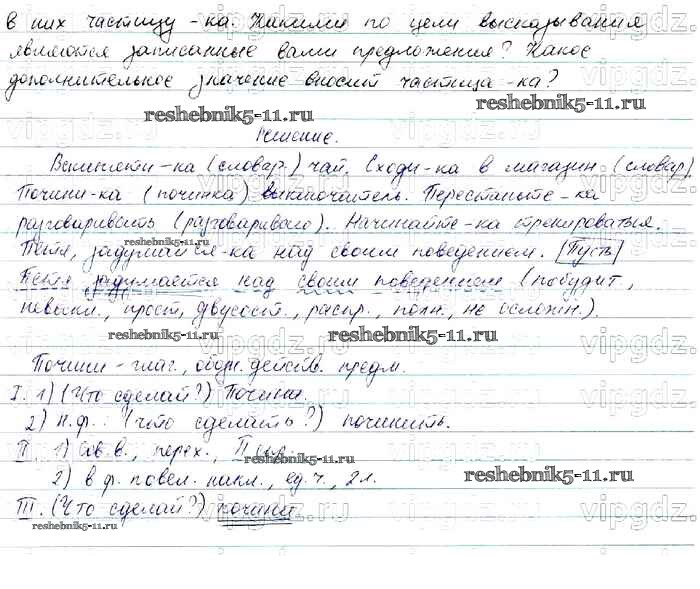 в них частицу -ка. Какими по цели высказывания
являются записанные вами предложения? Какое
дополнительное значение вносит частица -ка?
reshebnik5-11.ru
reshebnik5-11.ru
Решение.
Вскипяти-ка (словар.) чай. Сходи-ка в магазин (словар).
Почини-ка (починка) выключатель. Перестаньте-ка
разговаривать (разговариваю). Начинайте-ка тренироваться.
reshebnik5-11.ru
Петя, задумайся-ка над своим поведением. [Пусть]
Петя задумается над своим поведением (побудит.,
невоскл., прост., двусост., распр., полн., не осложн.).
reshebnik5-11.ru
reshebnik5-11.ru
Почини - глаг., обозн. действ. предм.
I. 1) (Что сделай?) Почини.
reshebnik5-11.ru
2) н.ф.: (что сделать?) починить.
II. 1) Сов.в., перех., II спр.
reshebnik5-11.ru
2) в ф. повел. накл., ед.ч., 2 л.
reshebnik5-11.ru
III. (Что сделай?) почини
reshebnik5-11.ru
vipgdz.ru